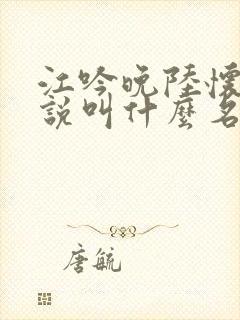 江吟晚陸懷
說叫什麼名
唐毓